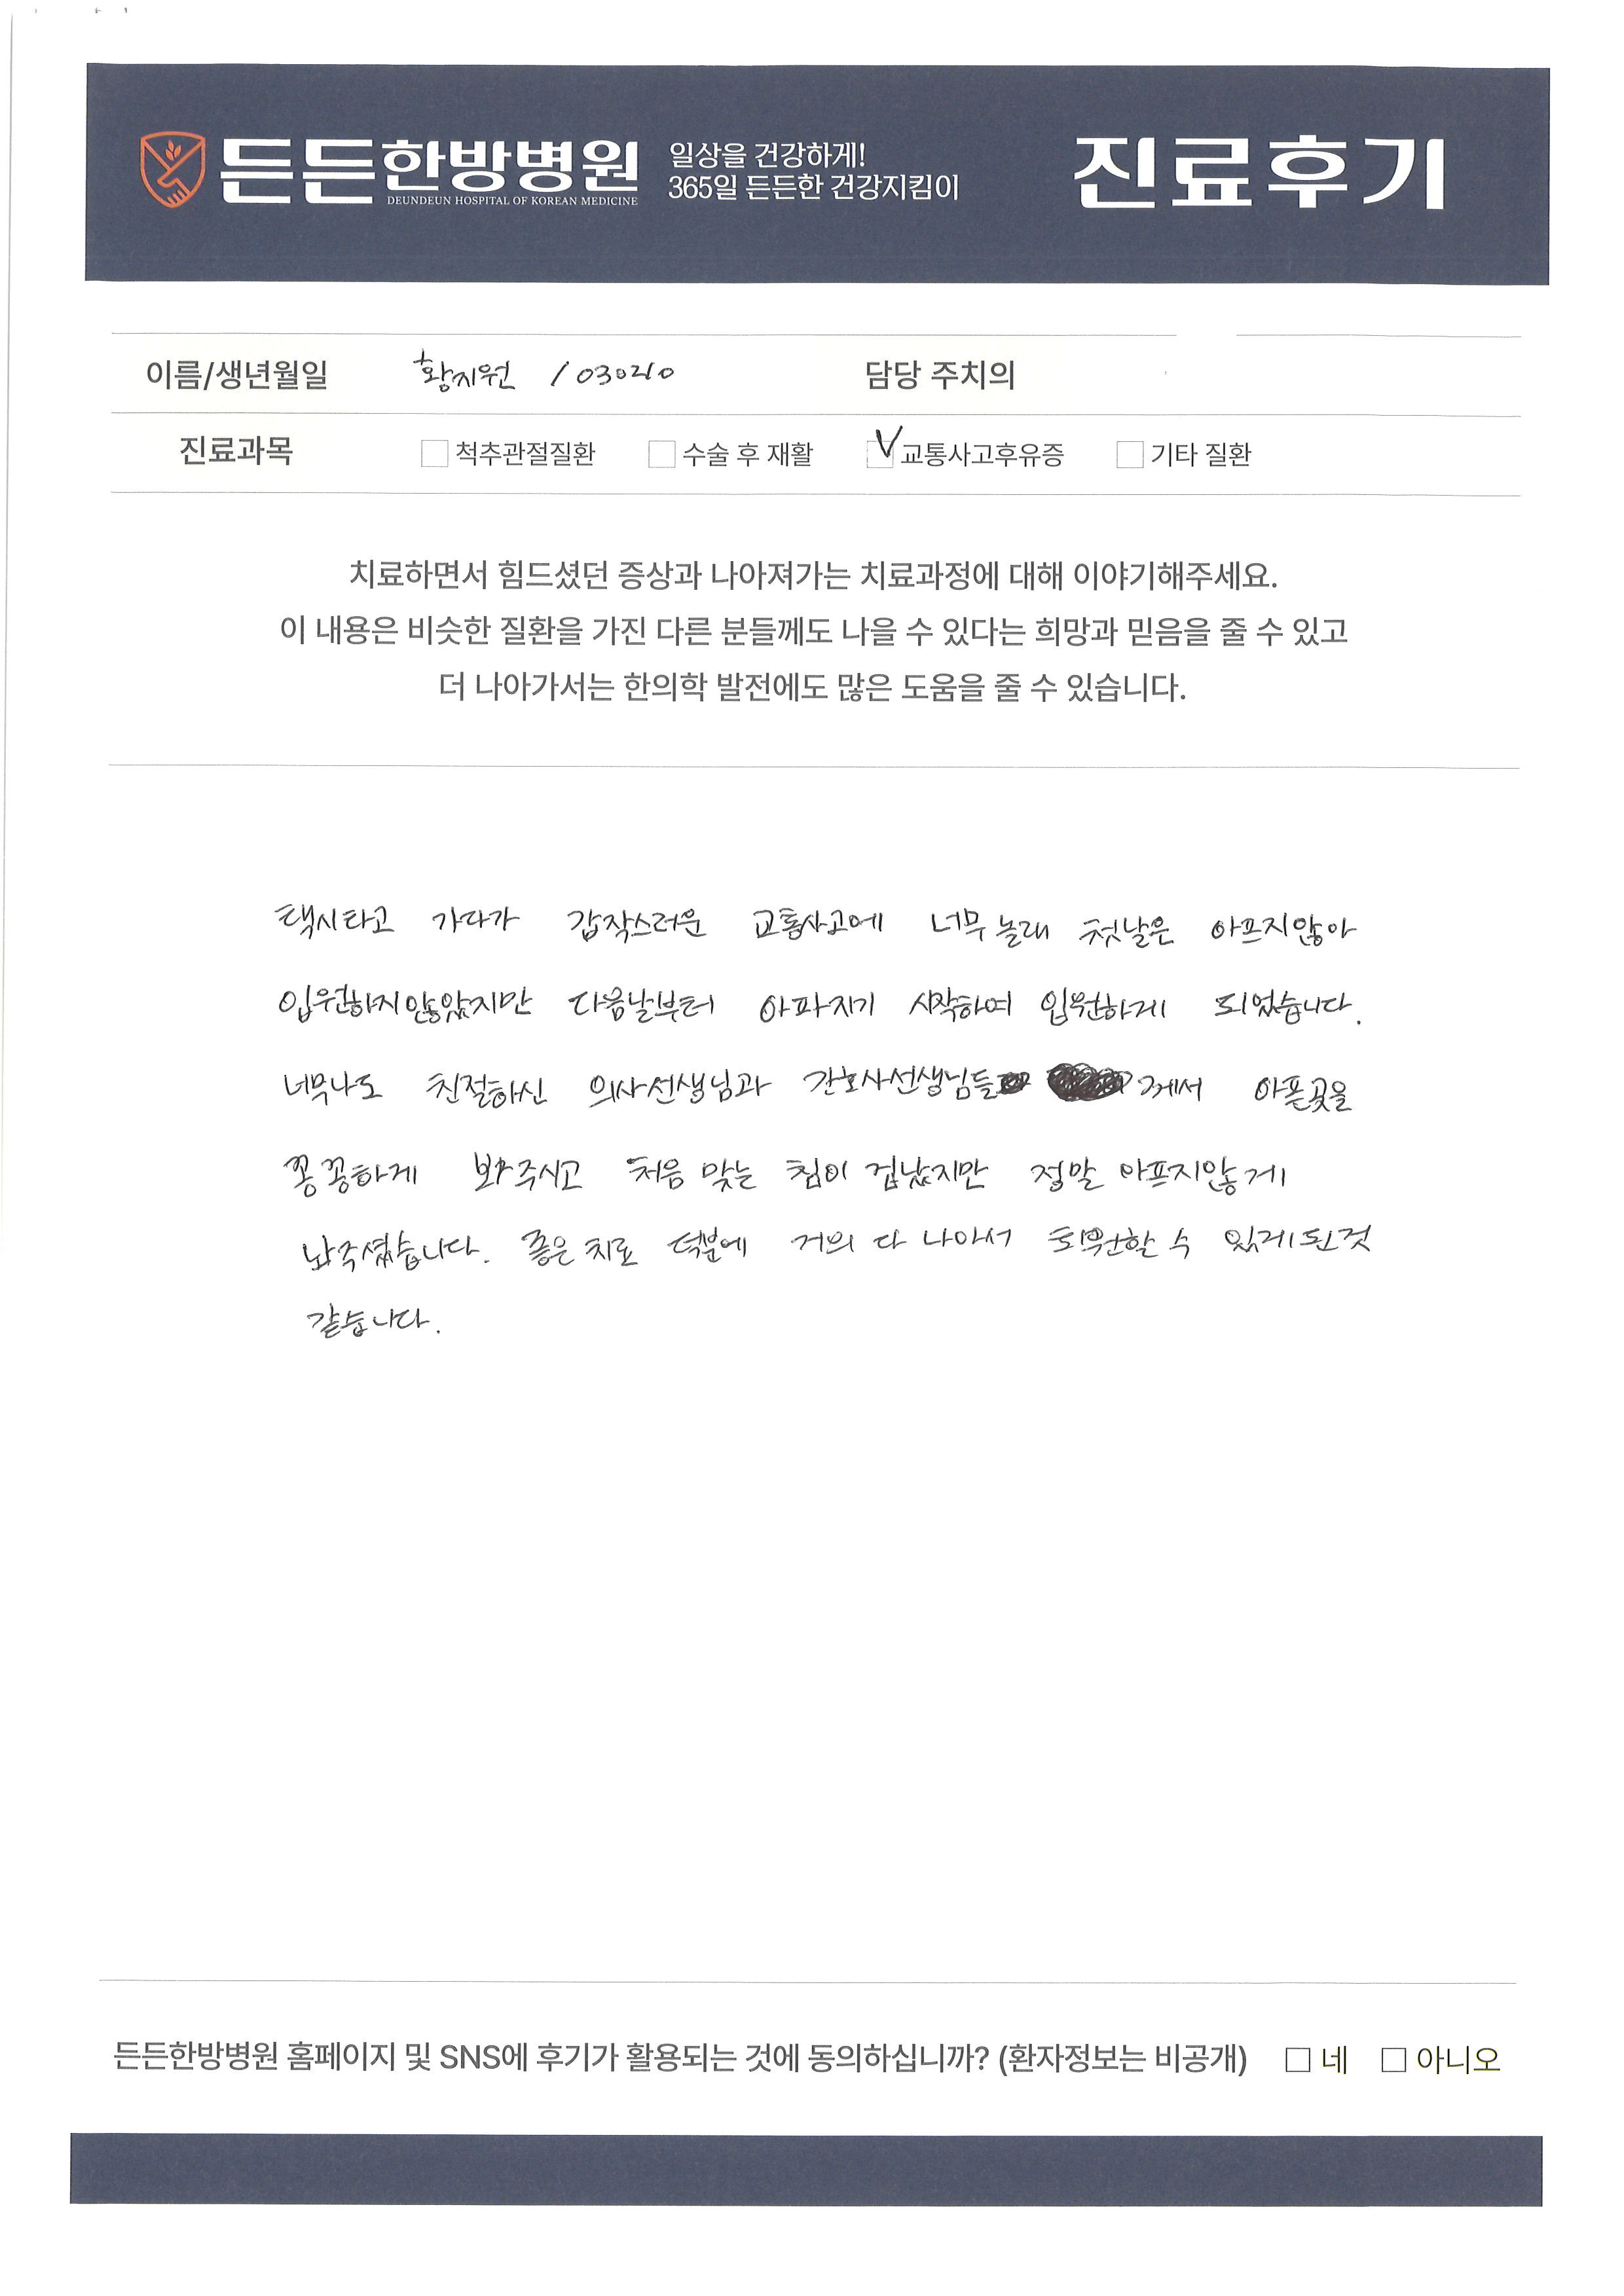 든든한방병원
DEUNDEUN HOSPITAL OF KOREAN MEDICINE
일상을 건강하게!
365일 든든한 건강지킴이
진료후기
이름/생년월일 황지원 / 030210 담당 주치의
진료과목 척추관절질환 수술 후 재활 교통사고후유증 기타 질환
치료하면서 힘드셨던 증상과 나아져가는 치료과정에 대해 이야기해주세요.
이 내용은 비슷한 질환을 가진 다른 분들께도 나을 수 있다는 희망과 믿음을 줄 수 있고
더 나아가서는 한의학 발전에도 많은 도움을 줄 수 있습니다.
택시타고 가다가 갑작스러운 교통사고에 너무 놀래 첫날은 아프지않아
입원하지않았지만 다음날부터 아파지기 시작하여 입원하게 되었습니다.
너무나도 친절하신 의사선생님과 간호사선생님들 께서 아픈곳을
꽁꽁하게 봐주시고 처음 맞는 침이 겁났지만 정말 아프지않게
놔주셨습니다. 좋은 치료 덕분에 거의 다 나아서 퇴원할 수 있게된것
같습니다.
든든한방병원 홈페이지 및 SNS에 후기가 활용되는 것에 동의하십니까? (환자정보는 비공개) 네 아니오